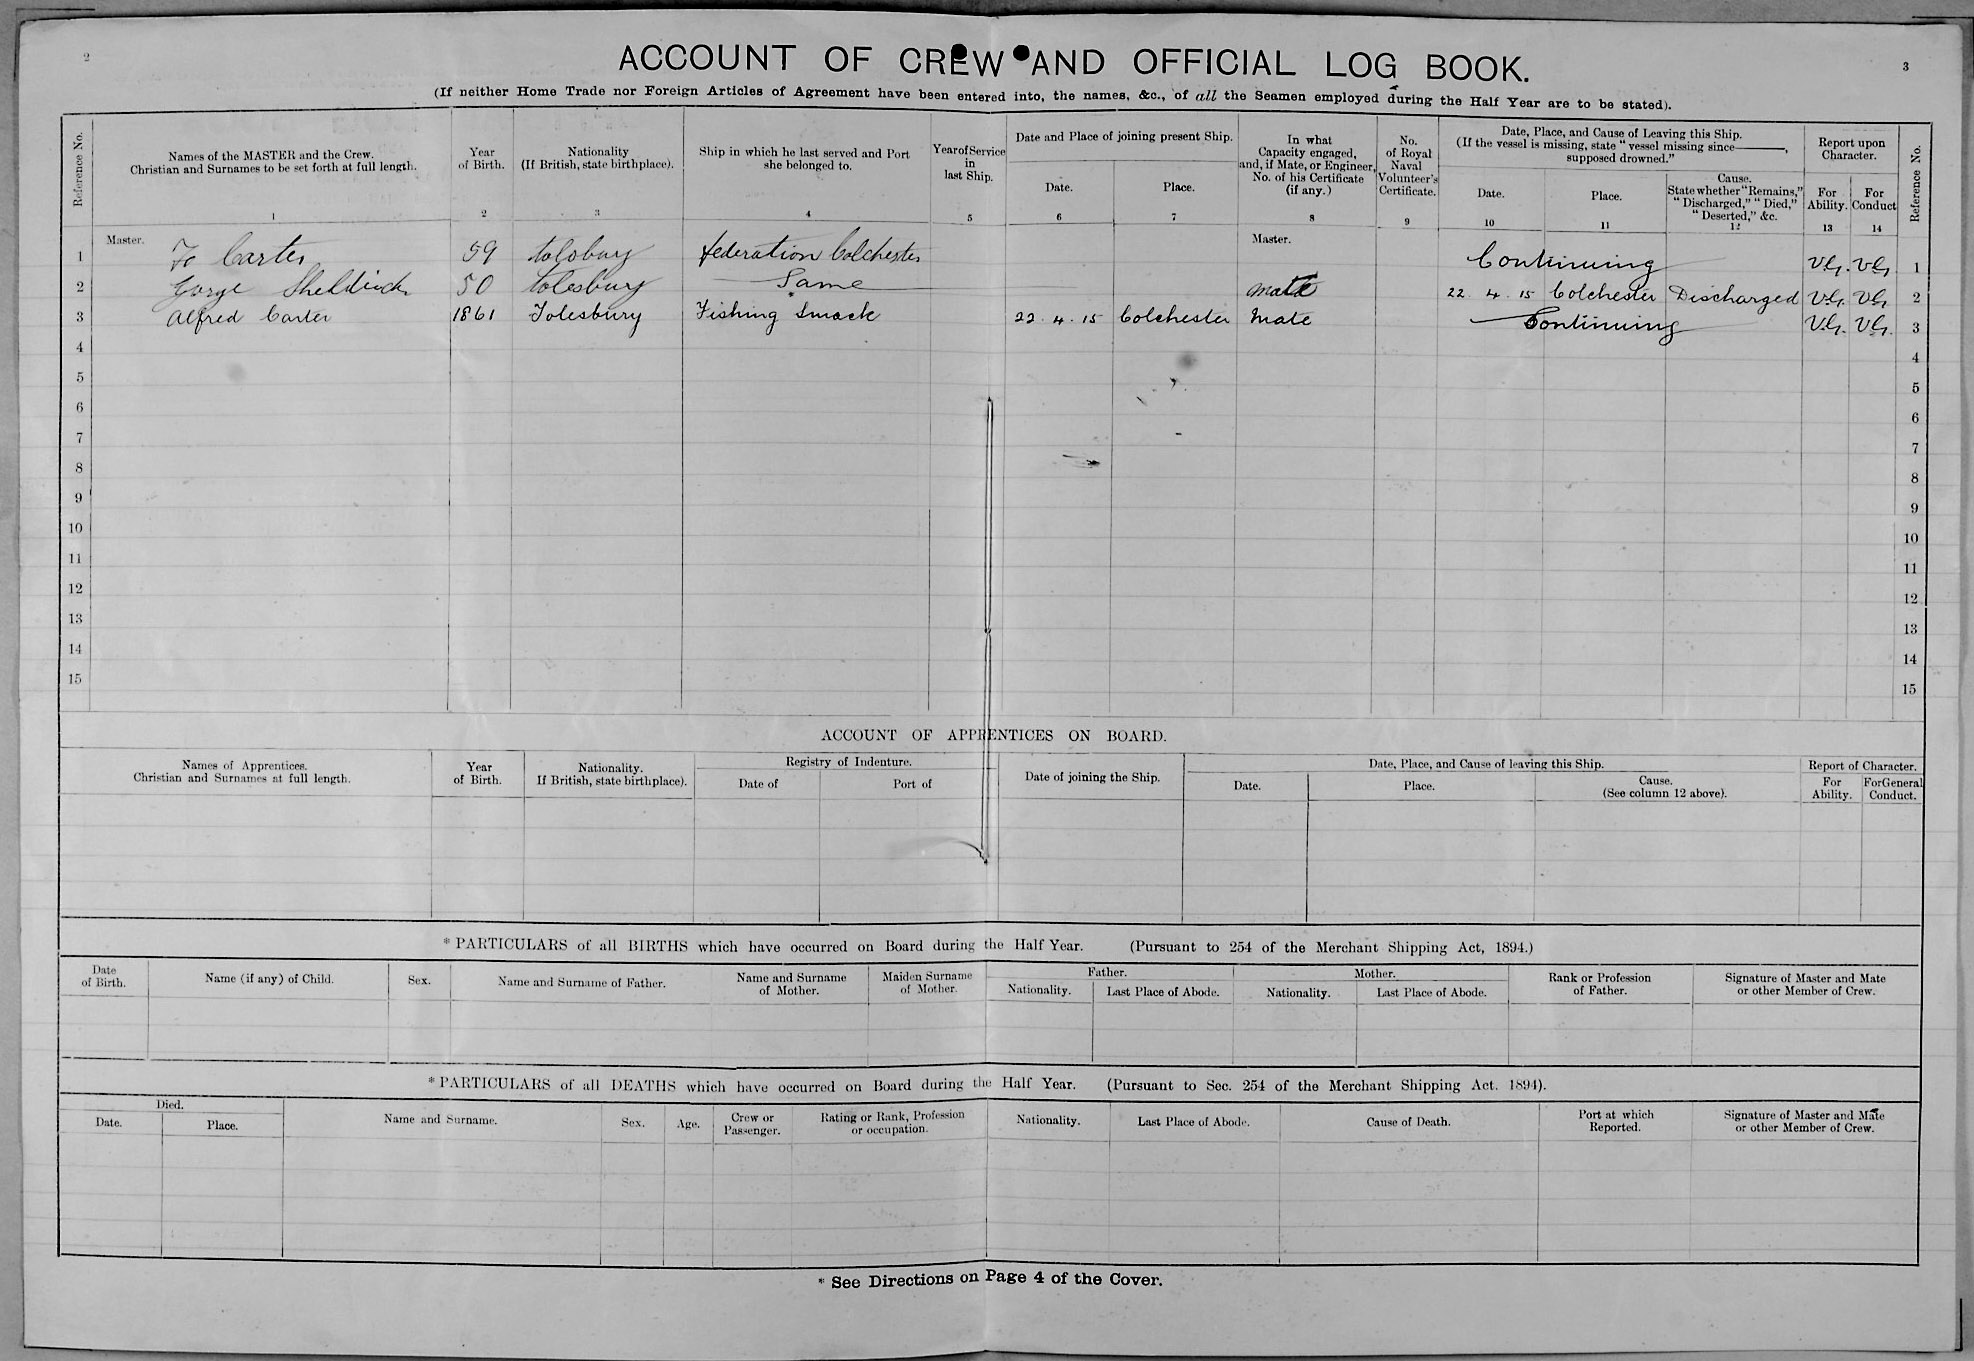 2
3
ACCOUNT OF CREW AND OFFICIAL LOG BOOK.
(If neither Home Trade nor Foreign Articles of Agreement have been entered into, the names, &c., of all the Seamen employed during the Half Year are to be stated).
Reference No.
Names of the MASTER and the Crew.
Christian and Surnames to be set forth at full length.
1
Year
of Birth.
2
Nationality
(If British, state birthplace).
3
Ship in which he last served and Port
she belonged to.
4
Year of Service
in
last Ship.
5
Date and Place of joining present Ship.
Date.
6
Place.
7
In what
Capacity engaged,
and, if Mate, or Engineer,
No. of his Certificate
(if any.)
8
No.
of Royal
Naval
Volunteer's
Certificate.
9
Date, Place, and Cause of Leaving this Ship.
(If the vessel is missing, state "vessel missing since———,
supposed drowned."
Date.
10
Place.
11
Cause.
State whether "Remains,"
"Discharged," "Died,"
"Deserted," &c.
12
Report upon
Character.
For
Ability.
13
For
Conduct
14
Reference No.
1 Master. Carter 59 federation Colchester Master. Continuing V.G. V.G. 1
2 George Sheldrick 50 tolesbury Same mate 22 . 4 . 15 Colchester Discharged V.G. V.G. 2
3 Alfred Carter 1861 Tolesbury Fishing Smack 22 . 4 . 15 Colchester Mate Continuing V.G. V.G. 3
4 4
5 5
6 6
7 7
8 8
9 9
10 10
11 11
12 12
13 13
14 14
15 15
ACCOUNT OF APPRENTICES ON BOARD.
Names of Apprentices.
Christian and Surnames at full length.
Year
of Birth.
Nationality.
If British, state birthplace).
Registry of Indenture.
Date of
Port of
Date of joining the Ship.
Date, Place, and Cause of leaving this Ship.
Date.
Place.
Cause.
(See column 12 above).
Report of Character.
For
Ability.
For General
Conduct.
*PARTICULARS of all BIRTHS which have occurred on Board during the Half Year. (Pursuant to 254 of the Merchant Shipping Act, 1894.)
Date
of Birth.
Name (if any) of Child.
Sex.
Name and Surname of Father.
Name and Surname
of Mother.
Maiden Surname
of Mother.
Father.
Nationality.
Last Place of Abode.
Mother.
Nationality.
Last Place of Abode.
Rank or Profession
of Father.
Signature of Master and Mate
or other Member of Crew.
*PARTICULARS of all DEATHS which have occurred on Board during the Half Year. (Pursuant to Sec. 254 of the Merchant Shipping Act. 1894).
Died.
Date.
Place.
Name and Surname.
Sex.
Age.
Crew or
Passenger.
Rating or Rank, Profession
or occupation.
Nationality.
Last Place of Abode.
Cause of Death.
Port at which
Reported.
Signature of Master and Mate
or other Member of Crew.
* See Directions on Page 4 of the Cover.